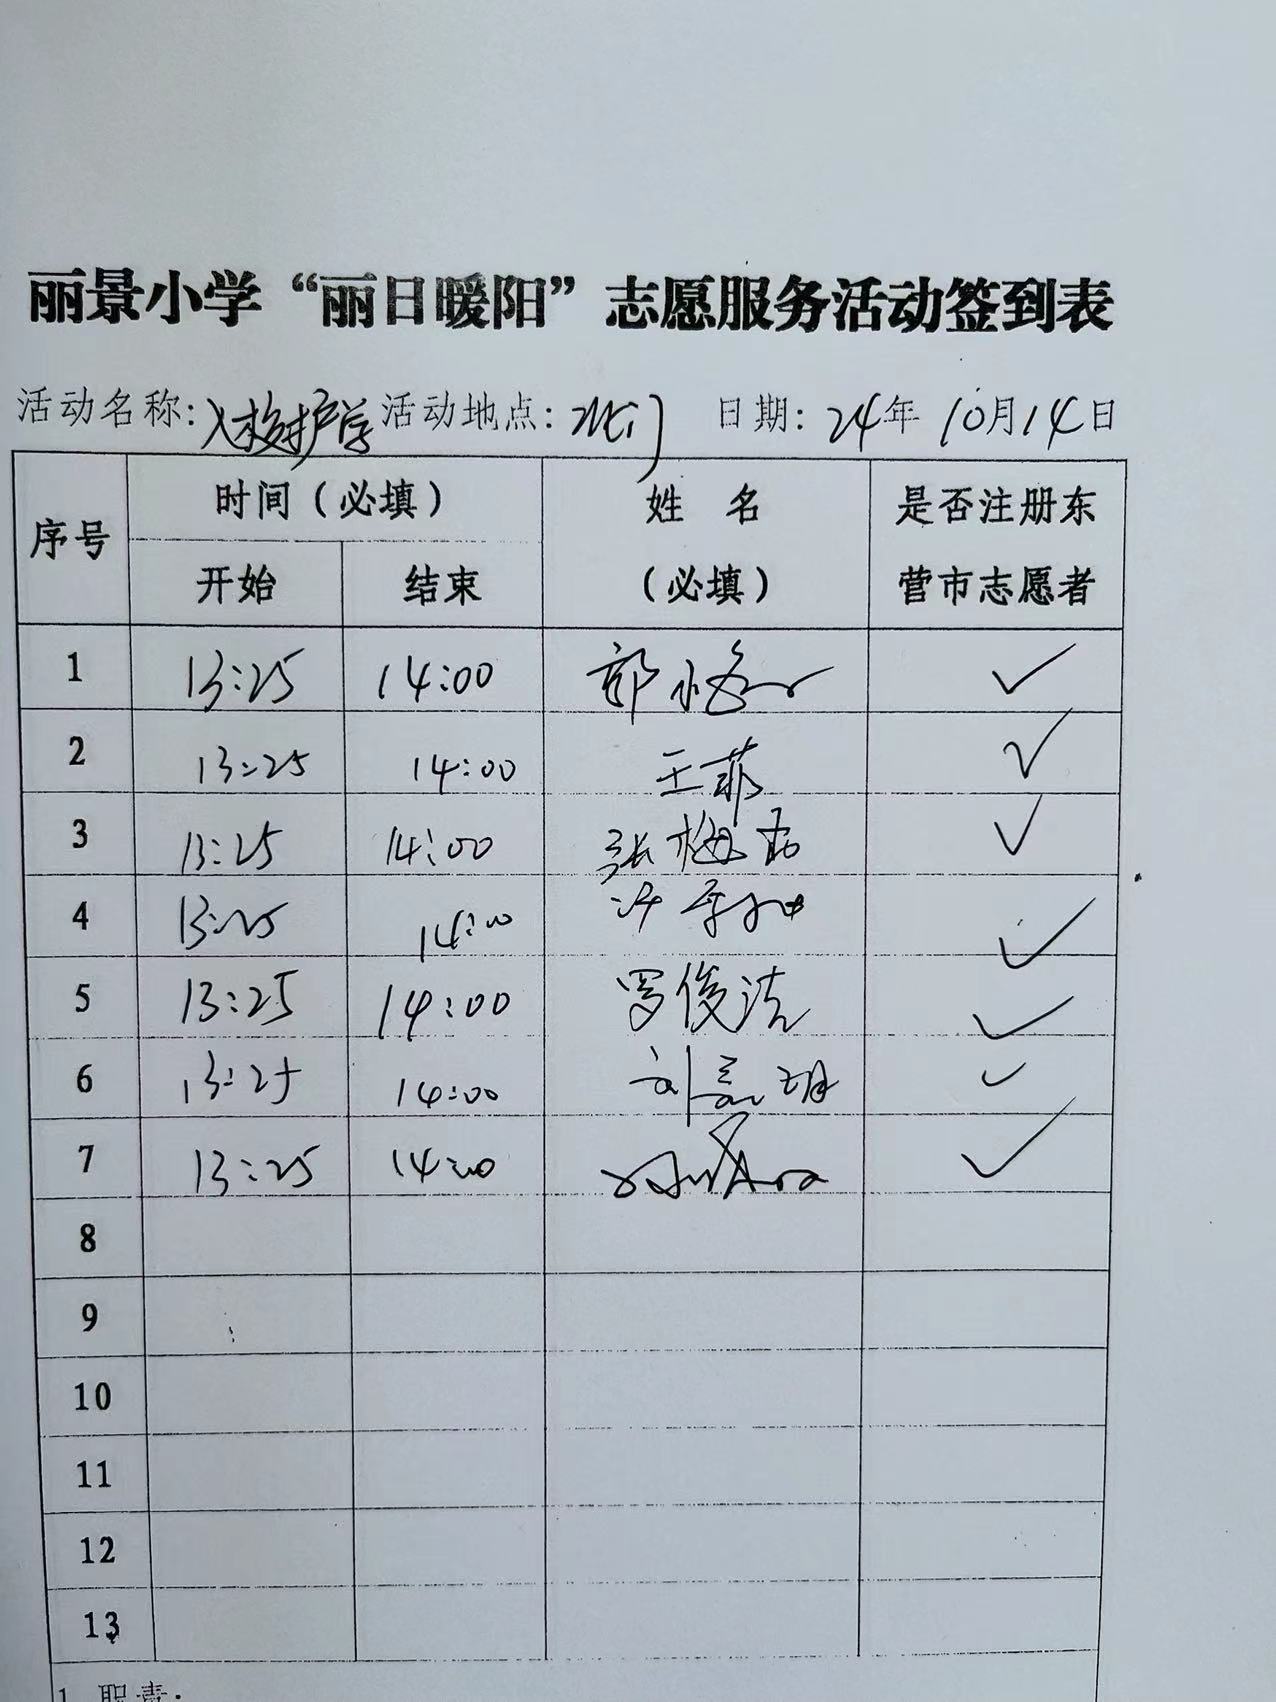 丽景小学“丽日暖阳”志愿服务活动签到表
活动名称:入校护学 活动地点:北门 日期:24年10月14日
序号 时间(必填) 姓 名 是否注册东
开始 结束 (必填) 营市志愿者
1 13:25 14:00 郭 ✓
2 13:25 14:00 王菲 ✓
3 13:25 14:00 张梅 ✓
4 13:25 14:00 ✓
5 13:25 14:00 罗俊洁 ✓
6 13:25 14:00 刘嘉玥 ✓
7 13:25 14:00 ✓
8
9
10
11
12
13
1.职责: